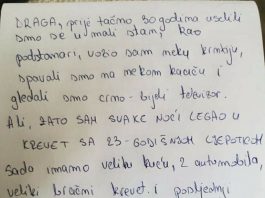 DRAGA, prije tačno, 30 godina uselili
smo se u mali stan, kao
podstanari, vozio sam neku krntiju,
spavali smo na nekom kauču i
gledali smo crno-bijeli televizor.
Ali, ZATO SAM SVAKE NOĆI LEGAO U
KREVET SA 23-GODIŠNJOM LJEPOTICOM
Sada imamo veliku kuću, 2 automobila,
veliki bračni krevet i posljednji